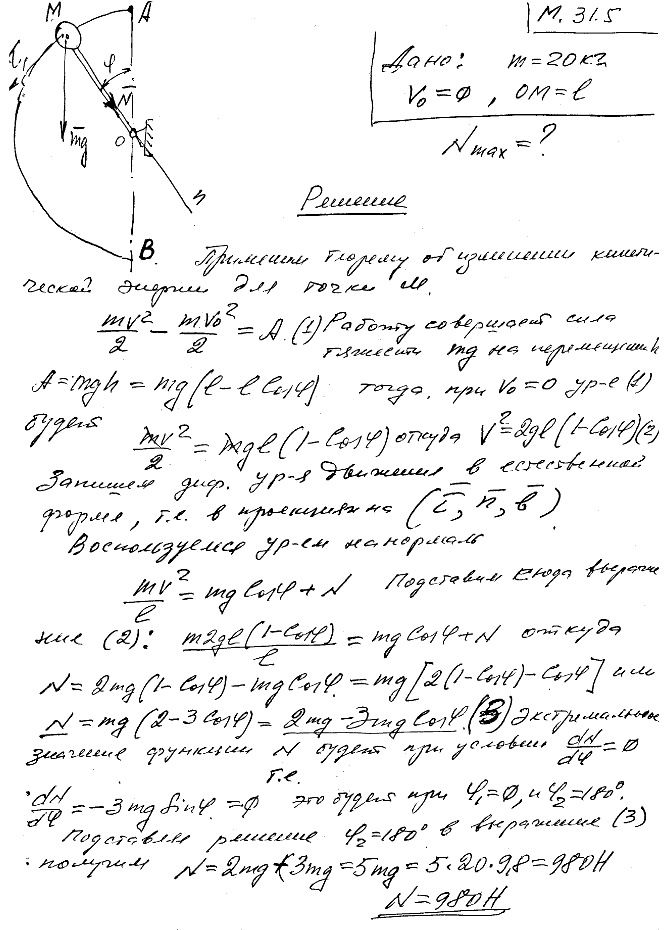 М. 31.5
Дано: m=20кг
V₀=0, OM=l
Nmax=?
M A
τ φ
N̄
m̄g O
n
B
Решение
Применим теорему об изменении кинети-
ческой энергии для точки М.
mv²/2 − mv₀²/2 = A (1) Работу совершает сила
тяжести mg на перемещении h
A=mgh=mg(l−l cosφ) тогда, при V₀=0 ур-е (1)
будет
mv²/2 = mgl(1−cosφ) откуда V²=2gl(1−cosφ)(2)
Запишем диф. ур-я движения в естественной
форме, т.е. в проекциях на (τ̄, n̄, b̄)
Воспользуемся ур-ем на нормаль
mv²/l = mg cosφ + N Подставим сюда выраже
ние (2): m2gl(1−cosφ)/l = mg cosφ+N откуда
N=2mg(1−cosφ)−mg cosφ=mg[2(1−cosφ)−cosφ] или
N=mg(2−3cosφ)=2mg−3mg cosφ (3) Экстремальное
значение функции N будет при условии dN/dφ=0
т.е.
dN/dφ=−3mg sinφ=0 это будет при φ₁=0, и φ₂=180°.
Подставляем решение φ₂=180° в выражение (3)
получим N=2mg+3mg=5mg=5·20·9,8=980Н
N=980Н